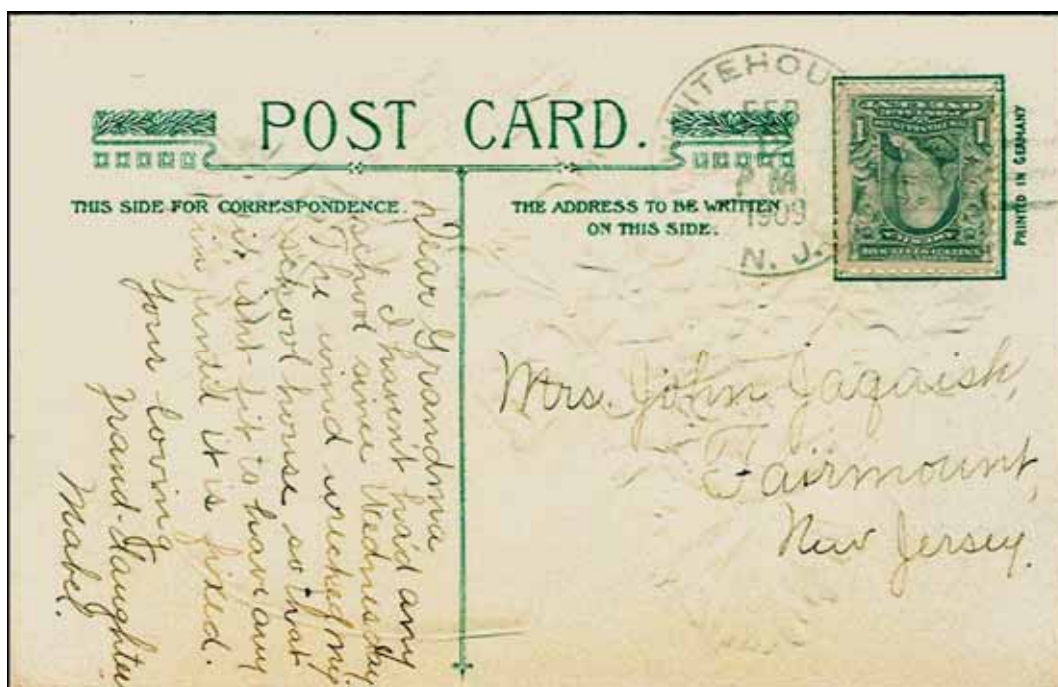 POST CARD.
THIS SIDE FOR CORRESPONDENCE.
THE ADDRESS TO BE WRITTEN
ON THIS SIDE.
PRINTED IN GERMANY
WHITEHOU
FEB
P M
1909
N. J.
1 1
Dear Grandma
I havent had any
school since Wednesday.
The wind wrecked my
school house so that
it isnt fit to have any
in until it is fixed.
Your loving
Grand-daughter
Mabel.
Mrs. John Jaqaish,
Fairmount,
New Jersey.